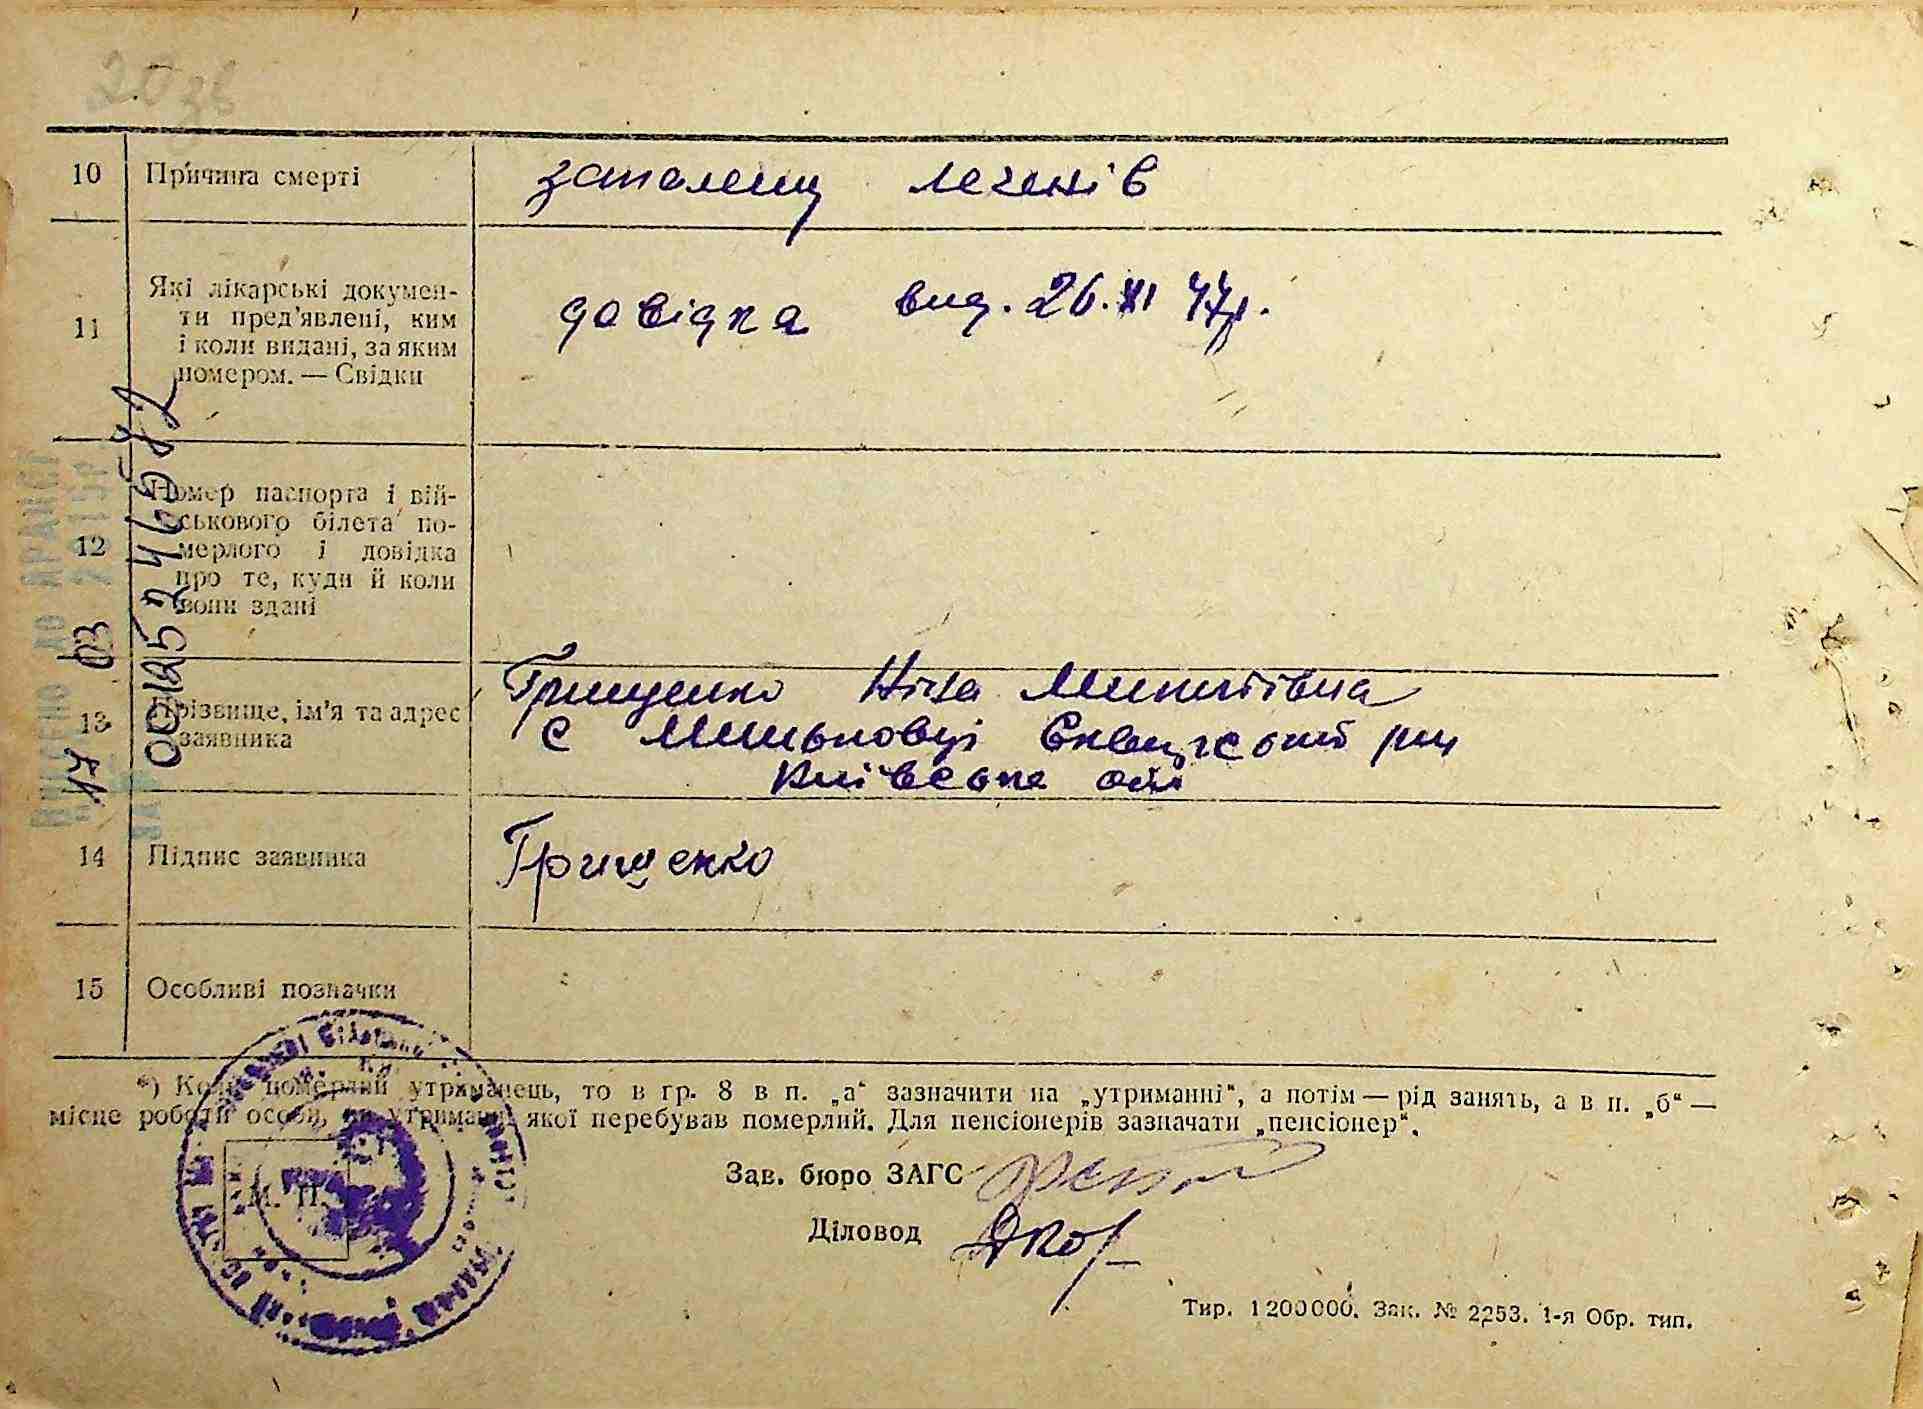 20 зв
10 Причина смерті запаленя легенів
11 Які лікарські докумен-
ти пред'явлені, ким
і коли видані, за яким
номером. — Свідки
довідка вид. 26.XI 47р.
12 Номер паспорта і вій-
ськового білета по-
мерлого і довідка
про те, куди й коли
вони здані
13 Прізвище, ім'я та адрес
заявника
Грищенко Ніна Микитівна
с Миньковці
Київська обл
14 Підпис заявника Грищенко
15 Особливі позначки
*) Коли померлий утриманець, то в гр. 8 в п. „а“ зазначити на „утриманні“, а потім — рід занять, а в п. „б“ —
місце роботи особи, на утриманні якої перебував померлий. Для пенсіонерів зазначати „пенсіонер“.
М. П.
Зав. бюро ЗАГС
Діловод
Тир. 1200000. Зак. № 2253. 1-я Обр. тип.
17 03
00125246582